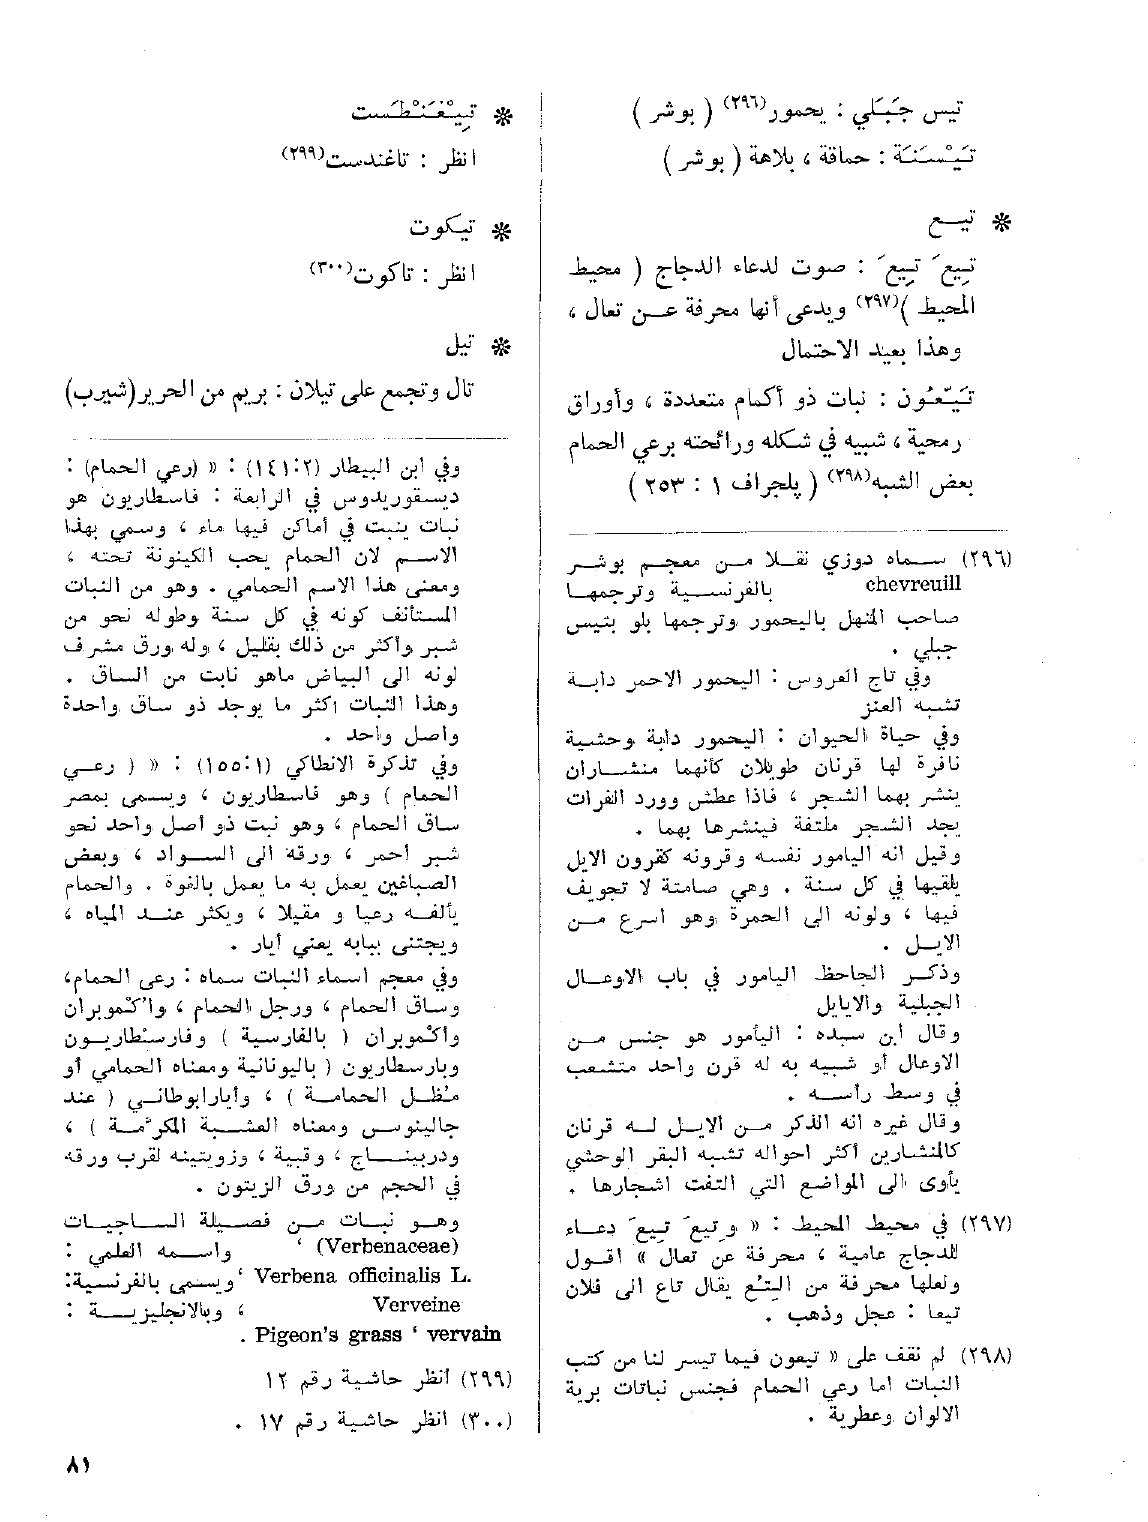 تيس جَبَلي : يحمور(٢٩٦) ( بوشر )
تَيْسَنَة : حماقة ، بلاهة ( بوشر )
❋ تيـع
تِيعَ تِيعَ : صوت لدعاء الدجاج ( محيط
المحيط )(٢٩٧) ويدعى أنها محرفة عـن تعال ،
وهذا بعيد الاحتمال
تَيْعُون : نبات ذو أكمام متعددة ، وأوراق
رمحية ، شبيه في شكله ورائحته برعي الحمام
بعض الشبه(٢٩٨) ( پلجراف ١ : ٢٥٣ )
(٢٩٦) سـماه دوزي نقـلا مـن معجـم بوشـر
chevreuill بالفرنسـية وترجمهـا
صاحب المنهل باليحمور وترجمها بلو بتيس
جبلي .
وفي تاج العروس : اليحمور الاحمر دابـة
تشبـه العنز
وفي حياة الحيوان : اليحمور دابة وحشية
نافرة لها قرنان طويلان كأنهما منشـاران
ينشر بهما الشجر ، فاذا عطش وورد الفرات
يجد الشجر ملتفة فينشرها بهما .
وقيل انه اليامور نفسه وقرونه كقرون الايل
يلقيها في كل سنة . وهي صامتة لا تجويف
فيها ، ولونه الى الحمرة وهو اسرع مـن
الايـل .
وذكـر الجاحظ اليامور في باب الاوعـال
الجبلية والايايل
وقال ابن سيده : اليأمور هو جنس مـن
الاوعال أو شبيه به له قرن واحد متشعب
في وسط رأسـه .
وقال غيره انه الذكر مـن الايـل لـه قرنان
كالمنشارين أكثر احواله تشبه البقر الوحشي
يأوى الى المواضع التي التفت اشجارها .
(٢٩٧) في محيط المحيط : « وتيعَ تِيعَ دعـاء
للدجاج عامية ، محرفة عن تعال » اقـول
ولعلها محرفة من التتع يقال تاع الى فلان
تيعا : عجل وذهب .
(٢٩٨) لم نقف على « تيعون فيما تيسر لنا من كتب
النبات اما رعي الحمام فجنس نباتات برية
الالوان وعطرية .
❋ تِيغَنْطَسْت
انظر : تاغندست(٢٩٩)
❋ تيكوت
انظر : تاكوت(٣٠٠)
❋ تيل
تال وتجمع على تيلان : بريم من الحرير(شيرب)
وفي ابن البيطار (٢:١٤١) : « (رعي الحمام) :
ديسقوريدوس في الرابعة : فاسطاريون هو
نبات ينبت في أماكن فيها ماء ، وسمي بهذا
الاسـم لان الحمام يحب الكينونة تحته ،
ومعنى هذا الاسم الحمامي . وهو من النبات
المستأنف كونه في كل سـنة وطوله نحو من
شبر وأكثر من ذلك بقليل ، وله ورق مشرف
لونه الى البياض ماهو نابت من الساق .
وهذا النبات اكثر ما يوجد ذو ساق واحدة
واصل واحد .
وفي تذكرة الانطاكي (١:١٥٥) : « ( رعـي
الحمام ) وهو فاسطاريون ، ويسمى بمصر
ساق الحمام ، وهو نبت ذو أصل واحد نحو
شبر أحمر ، ورقه الى السـواد ، وبعض
الصباغين يعمل به ما يعمل بالفوة . والحمام
يألفـه رعيا و مقيلا ، ويكثر عنـد المياه ،
ويجتنى ببابه يعني أيار .
وفي معجم اسماء النبات سماه : رعى الحمام،
وساق الحمام ، ورجل الحمام ، واكموبران
واكموبران ( بالفارسية ) وفارسطاريـون
وبارسطاريون ( باليونانية ومعناه الحمامي أو
مُظـل الحمامـة ) ، وأيارابوطانـي ( عند
جالينوس ومعناه العشـبة المكرّمـة ) ،
ودربينـاج ، وقبية ، وزويتينه لقرب ورقه
في الحجم من ورق الزيتون .
وهـو نبـات مـن فصـيلة السـاجيـات
(Verbenaceae) ، واسـمه العلمي :
Verbena officinalis L. ، ويسمى بالفرنسـية:
Verveine ، وبالانجليزيـة :
Pigeon's grass ، vervain .
(٢٩٩) انظر حاشية رقم ١٢
(٣٠٠) انظر حاشية رقم ١٧ .
٨١